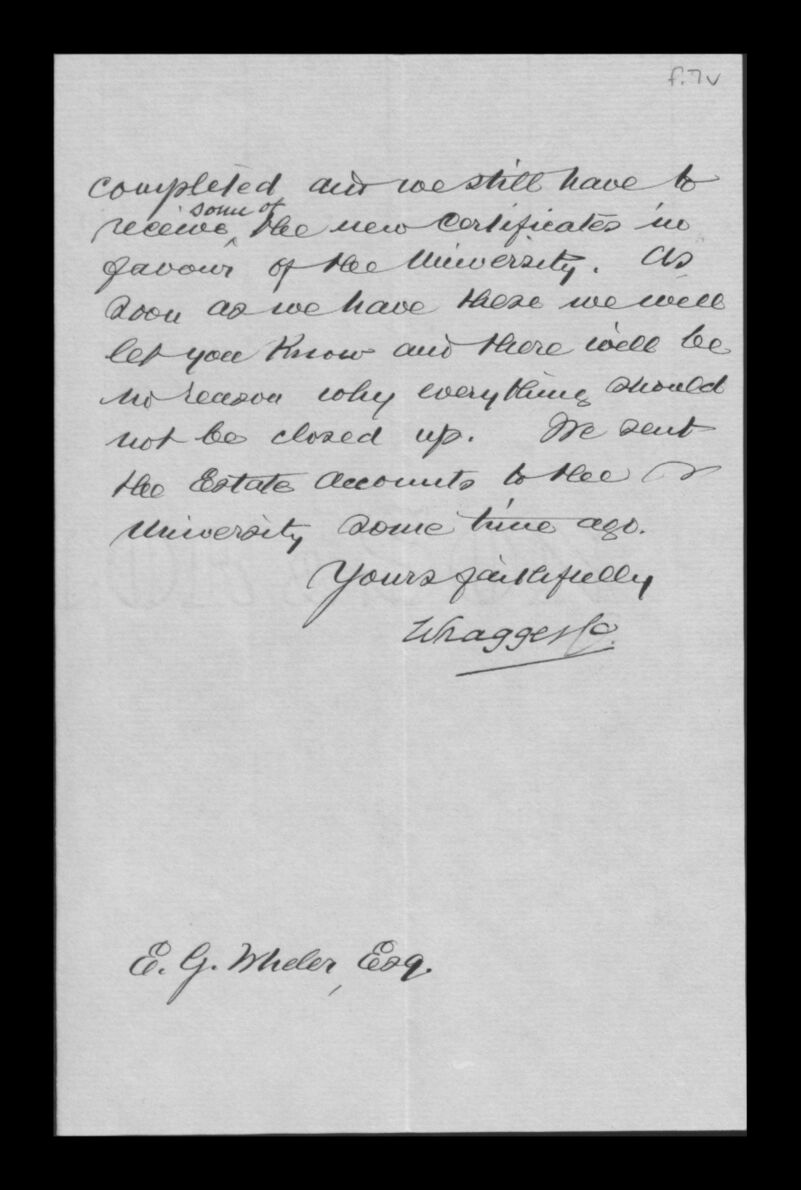 f.7v
completed and we still have to
some of
receive ‸ the new Certificates in
favour of the University. As
soon as we have these we will
let you know and there will be
no reason why everything should
not be closed up. We sent
the Estate Accounts to the
University some time ago.
Yours faithfully
Wragge & Co.
E. G. Wheler, Esq.